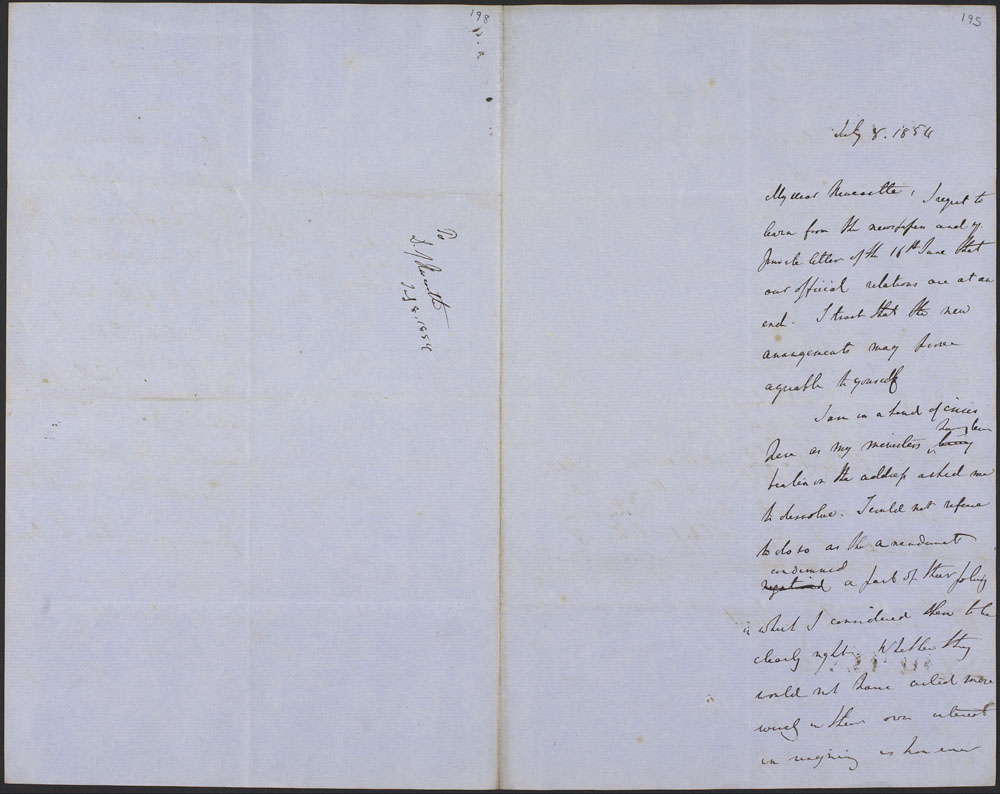 198
To
D. of Newcastle
July 8. 1854
195
July 8. 1854
My dear Newcastle, I regret to
learn from the newspapers and yr
private letter of the 16th June that
our official relations are at an
end. I trust that the new
arrangements may prove
agreeable to yourself
I am in a kind of crisis
having been
here as my ministers being
beaten on the address asked me
to dissolve. I could not refuse
to do so as the amendment
condemned
negatived a part of their policy
in which I considered them to be
clearly right. Whether they
would not have acted more
wisely in their own interest
in resigning is however